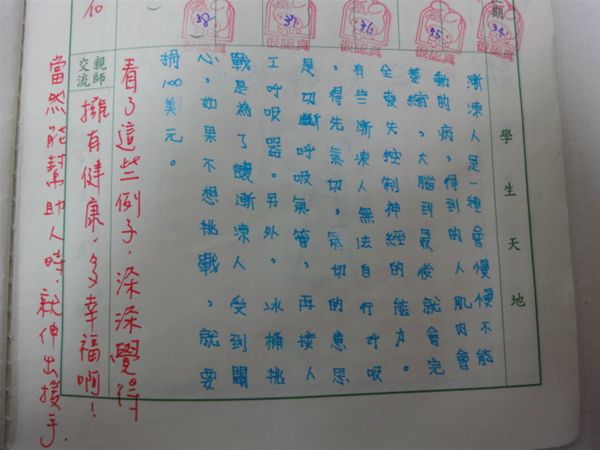 期
34
35
很認真
36
很認真
37
很認真
38
很認真
學生天地
漸凍人是一種會慢慢不能
動的病，得到的人肌肉會
萎縮，大腦到最後就會完
全喪失控制神經的能力。
有些漸凍人無法自行呼吸
，得先氣切，氣切的意思
是切斷呼吸氣管，再接人
工呼吸器。另外，冰桶挑
戰是為了讓漸凍人受到關
心，如果不想挑戰，就要
捐100美元。
親師交流
看了這些例子，深深覺得
擁有健康，多幸福啊！
當然能幫助人時，就伸出援手．